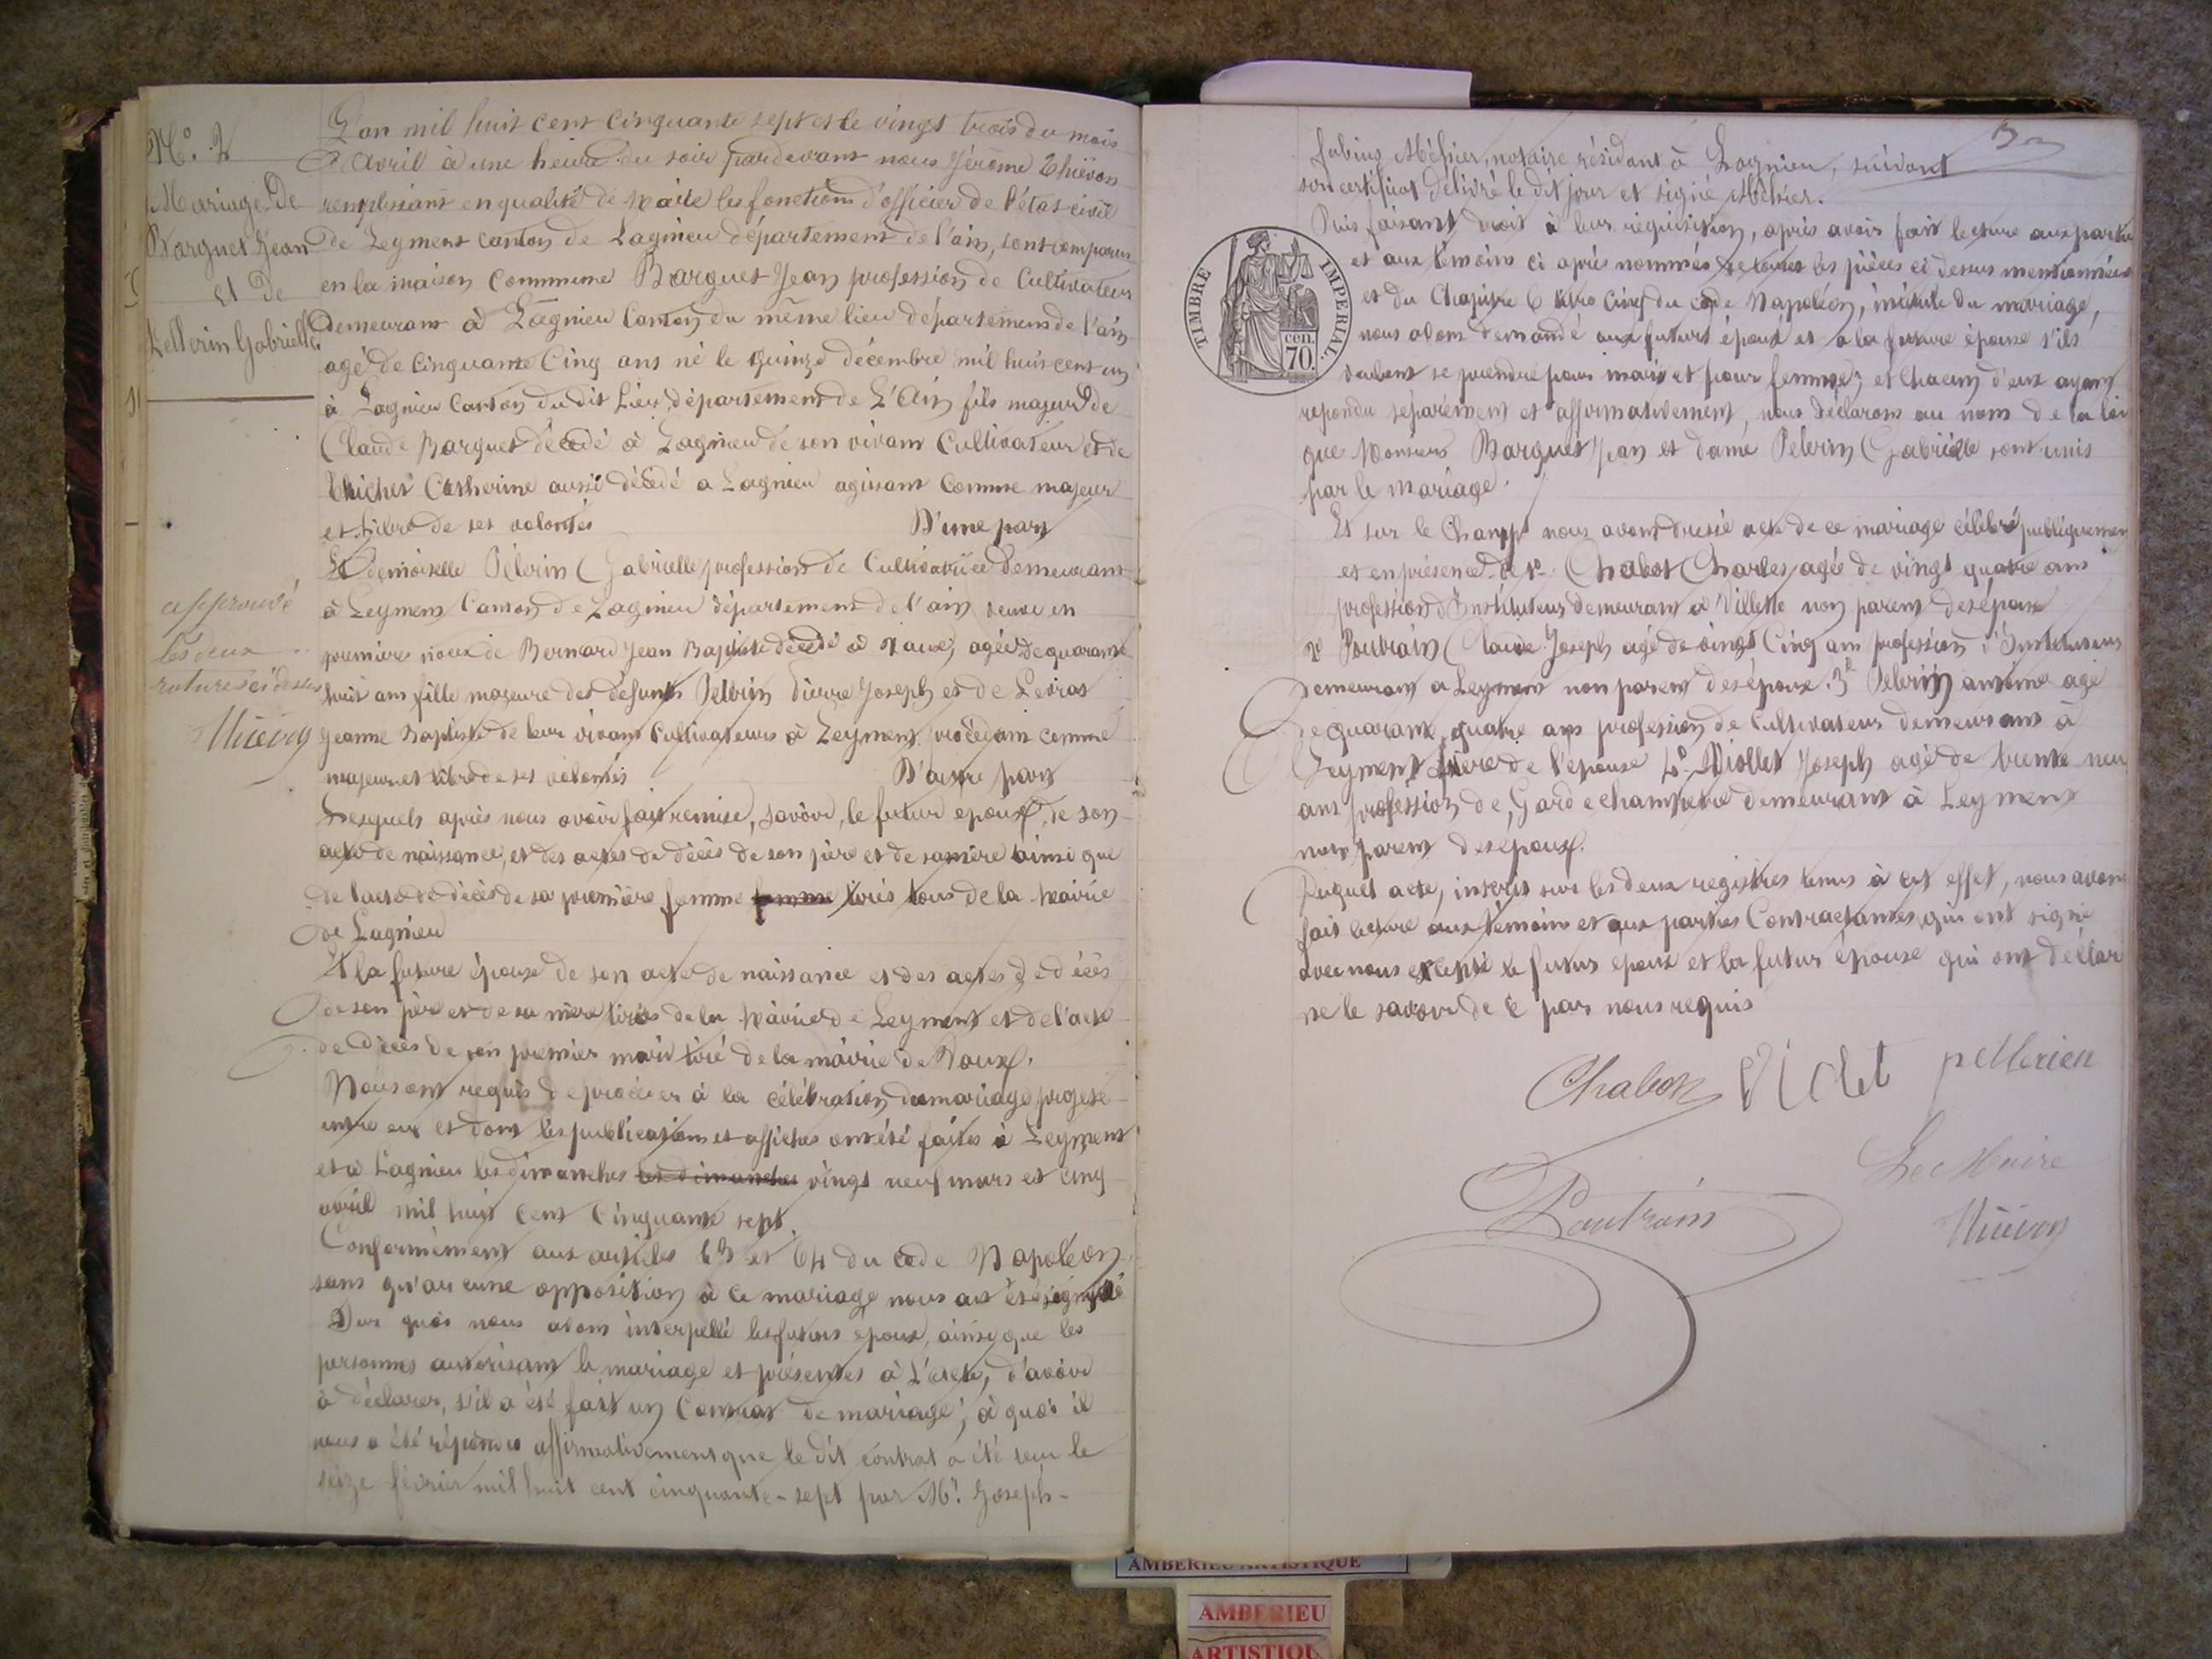 N.° 2
Mariage De
Barguet Jean
et De
Pellerin Gabrielle
approuvé
les deux
ratures ci dessus
Thiévon
L'an mil huit cent cinquante sept et le vingt trois du mois
D'Avril à une heure du soir pardevant nous Jérôme Thiévon
remplissant en qualité de Maire les fonctions d'officier de l'état civil
de Leyment canton de Lagnieu département de l'ain, sont comparus
en la maison Commune Barguet Jean profession de Cultivateur
Demeurant à Lagnieu Canton du même lieu département de l'ain
agé de Cinquante Cinq ans né le quinze décembre mil huit cent un
à Lagnieu Canton du dit Lieu, département de L'Ain fils majeur de
Claude Barguet décédé à Lagnieu de son vivant Cultivateur et de
Catherine aussi décédé a Lagnieu agissant Comme majeur
et libre de ses volontés D'une part
Et demoiselle Pélerin Gabrielle profession de Cultivatrice Demeurant
à Leyment Canton de Lagnieu département de l'ain veuve en
première noce de Bernard Jean Baptiste décédé à agée de quarante
huit ans fille majeure des défunts Pellerin Pierre Joseph et de
Jeanne Baptiste de leur vivant Cultivateurs à Leyment procédant comme
majeur et libre de ses volontés D'autre part
Lesquels après nous avoir fait remise, savoir, le futur epoux, de son
acte de naissance, et des actes de décès de son père et de sa mère ainsi que
de l'acte de décès de sa première femme femme tirés tous de la Mairie
de Lagnieu
Et la future épouse de son acte de naissance et des actes de décès
de son père et de sa mère tirés de la Mairie de Leyment et de l'acte
de décès de son premier mari tiré de la mairie de
Nous ont requis de procéder à la célébration du mariage projeté
entre eux et dont les publications et affiches ont été faites à Leyment
et à Lagnieu les dimanches les dimanches vingt neuf mars et cinq
avril mil huit Cent Cinquante sept.
Conformément aux articles 63 et 64 du code Napoléon,
sans qu'aucune opposition à ce mariage nous ait été signifié
Sur quoi nous avons interpellé les futurs époux, ainsi que les
personnes autorisant le mariage et présentes à L'acte, d'avoir
à déclarer, s'il a été fait un Contrat de mariage; à quoi il
nous a été répondu affirmativement que le dit contrat a été reçu le
seize février mil huit cent cinquante-sept par Mr. Joseph-
3
fabius Méssier, notaire résidant à Lagnieu, suivant
son certificat délivré le dit jour et signé Méssier.
TIMBRE IMPERIAL.
70. cen.
Puis faisant droit à leur réquisition, après avoir fait lecture aux partie
et aux témoins ci après nommés de toutes les pièces ci dessus mentionnées
et du Chapitre 6 titre Cinq du code Napoléon, intitulé du mariage,
nous avons demandé aux futurs époux et a la future épouse s'ils
veulent se prendre pour mari et pour femme; et Chacun d'eux ayant
repondu séparément et affirmativement, nous déclarons au nom de la loi
que Monsieur Barguet Jean et dame Pélerin Gabrielle sont unis
par le mariage.
Et sur le Champ nous avons dressé acte de ce mariage célébré publiquemen
et en présence de 1° Chabot Charles, agé de vingt quatre ans
profession d'Instituteur demeurant à Villette non parent des époux
2° Poutrain Claude Joseph agé de vingt Cinq ans profession d'Instituteur
Demeurant a Leyment non parent des époux. 3° Pelerin antime agé
de quarante quatre ans profession de Cultivateur demeurant à
Leyment frère de l'épouse 4° Viollet Joseph agé de trente neu
ans profession de Garde champetre demeurant à Leyment
non parent des époux.
Duquel acte, inscrit sur les deux registres tenus à cet effet, nous avon
fait lecture aux témoins et aux parties Contractantes, qui ont signé
avec nous excepté le futur époux et la futur épouse qui ont déclar
ne le savoir de ce par nous requis
Chabot Violet pellerien
Poutrain
Le Maire
Thiévon
AMBERIEU ARTISTIQUE
AMBERIEU
ARTISTIQU